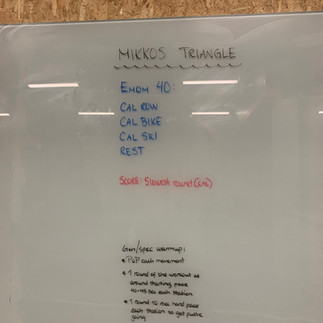 MIKKOS TRIANGLE
EMOM 40:
CAL ROW
CAL BIKE
CAL SKI
REST
SCORE: SLOWEST round
Gen/spec warmup:
• PUP each movement
• 1 round of the workout as
around starting pace
40-45 sec each station
• 1 round 10 sec hard pace
each station to get pulse
going